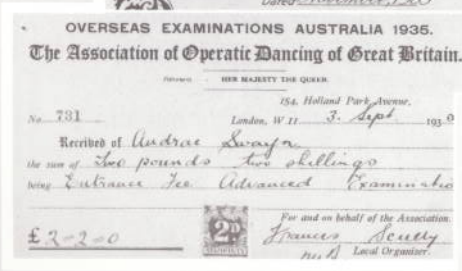 OVERSEAS EXAMINATIONS AUSTRALIA 1935.
The Association of Operatic Dancing of Great Britain.
HER MAJESTY THE QUEEN.
154, Holland Park Avenue,
No. 731 London, W 11 3. Sept. 193
Received of Audrae
the sum of Two pounds two shillings
being Entrance Fee Advanced Examinatio
2D
For and on behalf of the Association.
£ 2-2-0 Frances Scully
Local Organiser.